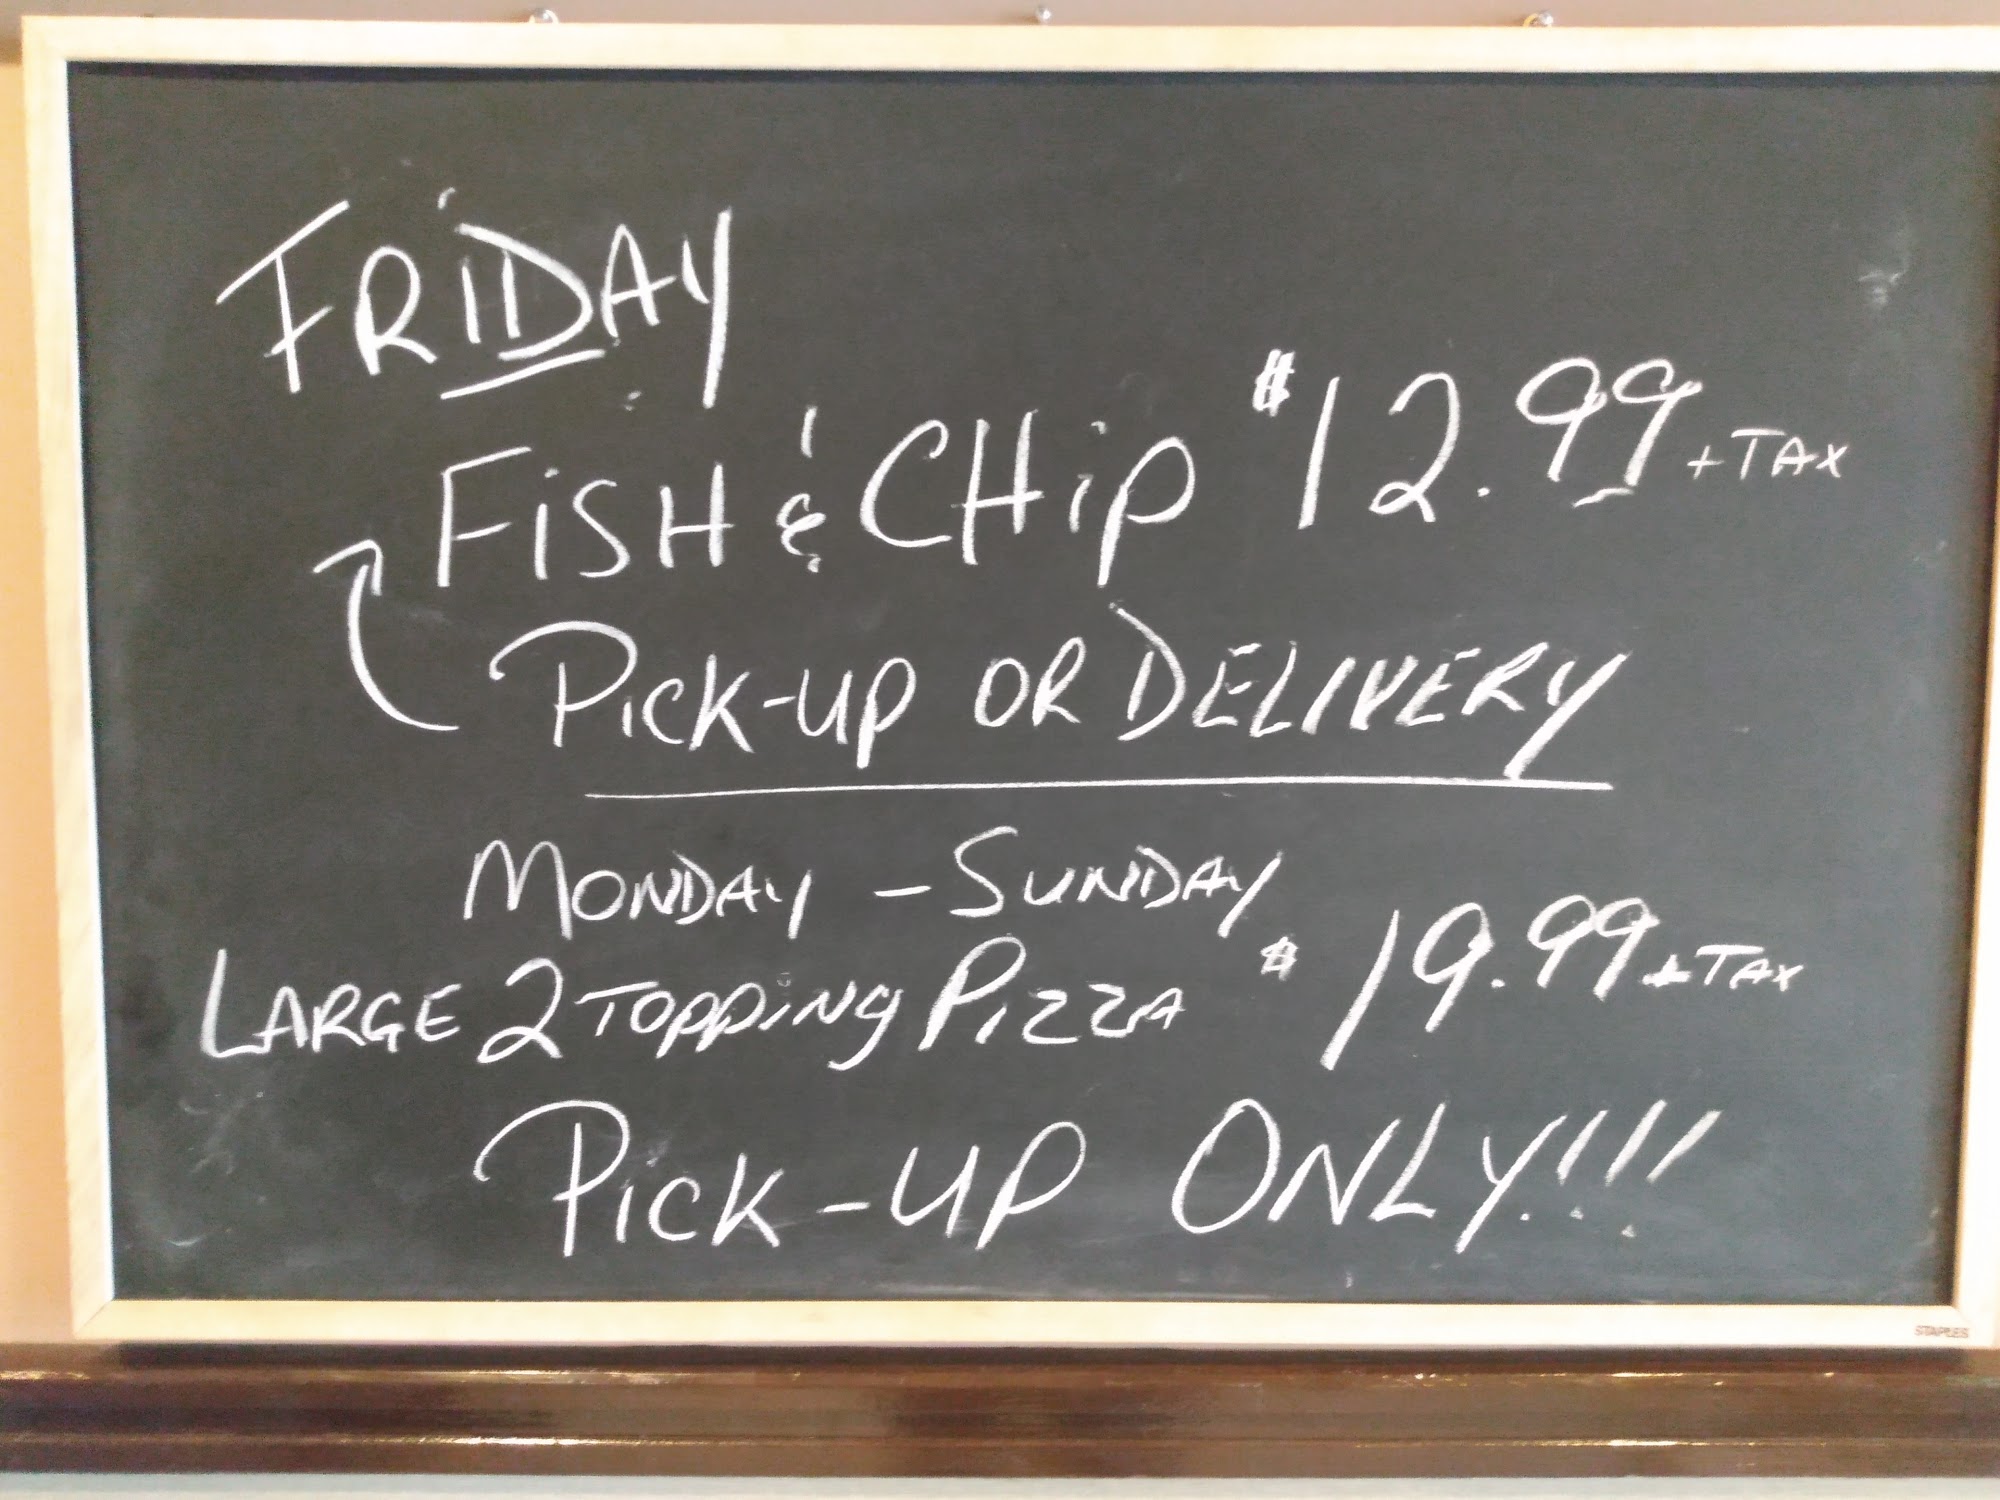 FRiDAY
FiSH & CHiP $12.99 + TAX
PiCK-UP OR DELIVERY
MONDAY - SUNDAY
LARGE 2 TOPPiNG PiZZA $19.99 + TAX
PiCK-UP ONLY!!!
STAPLES